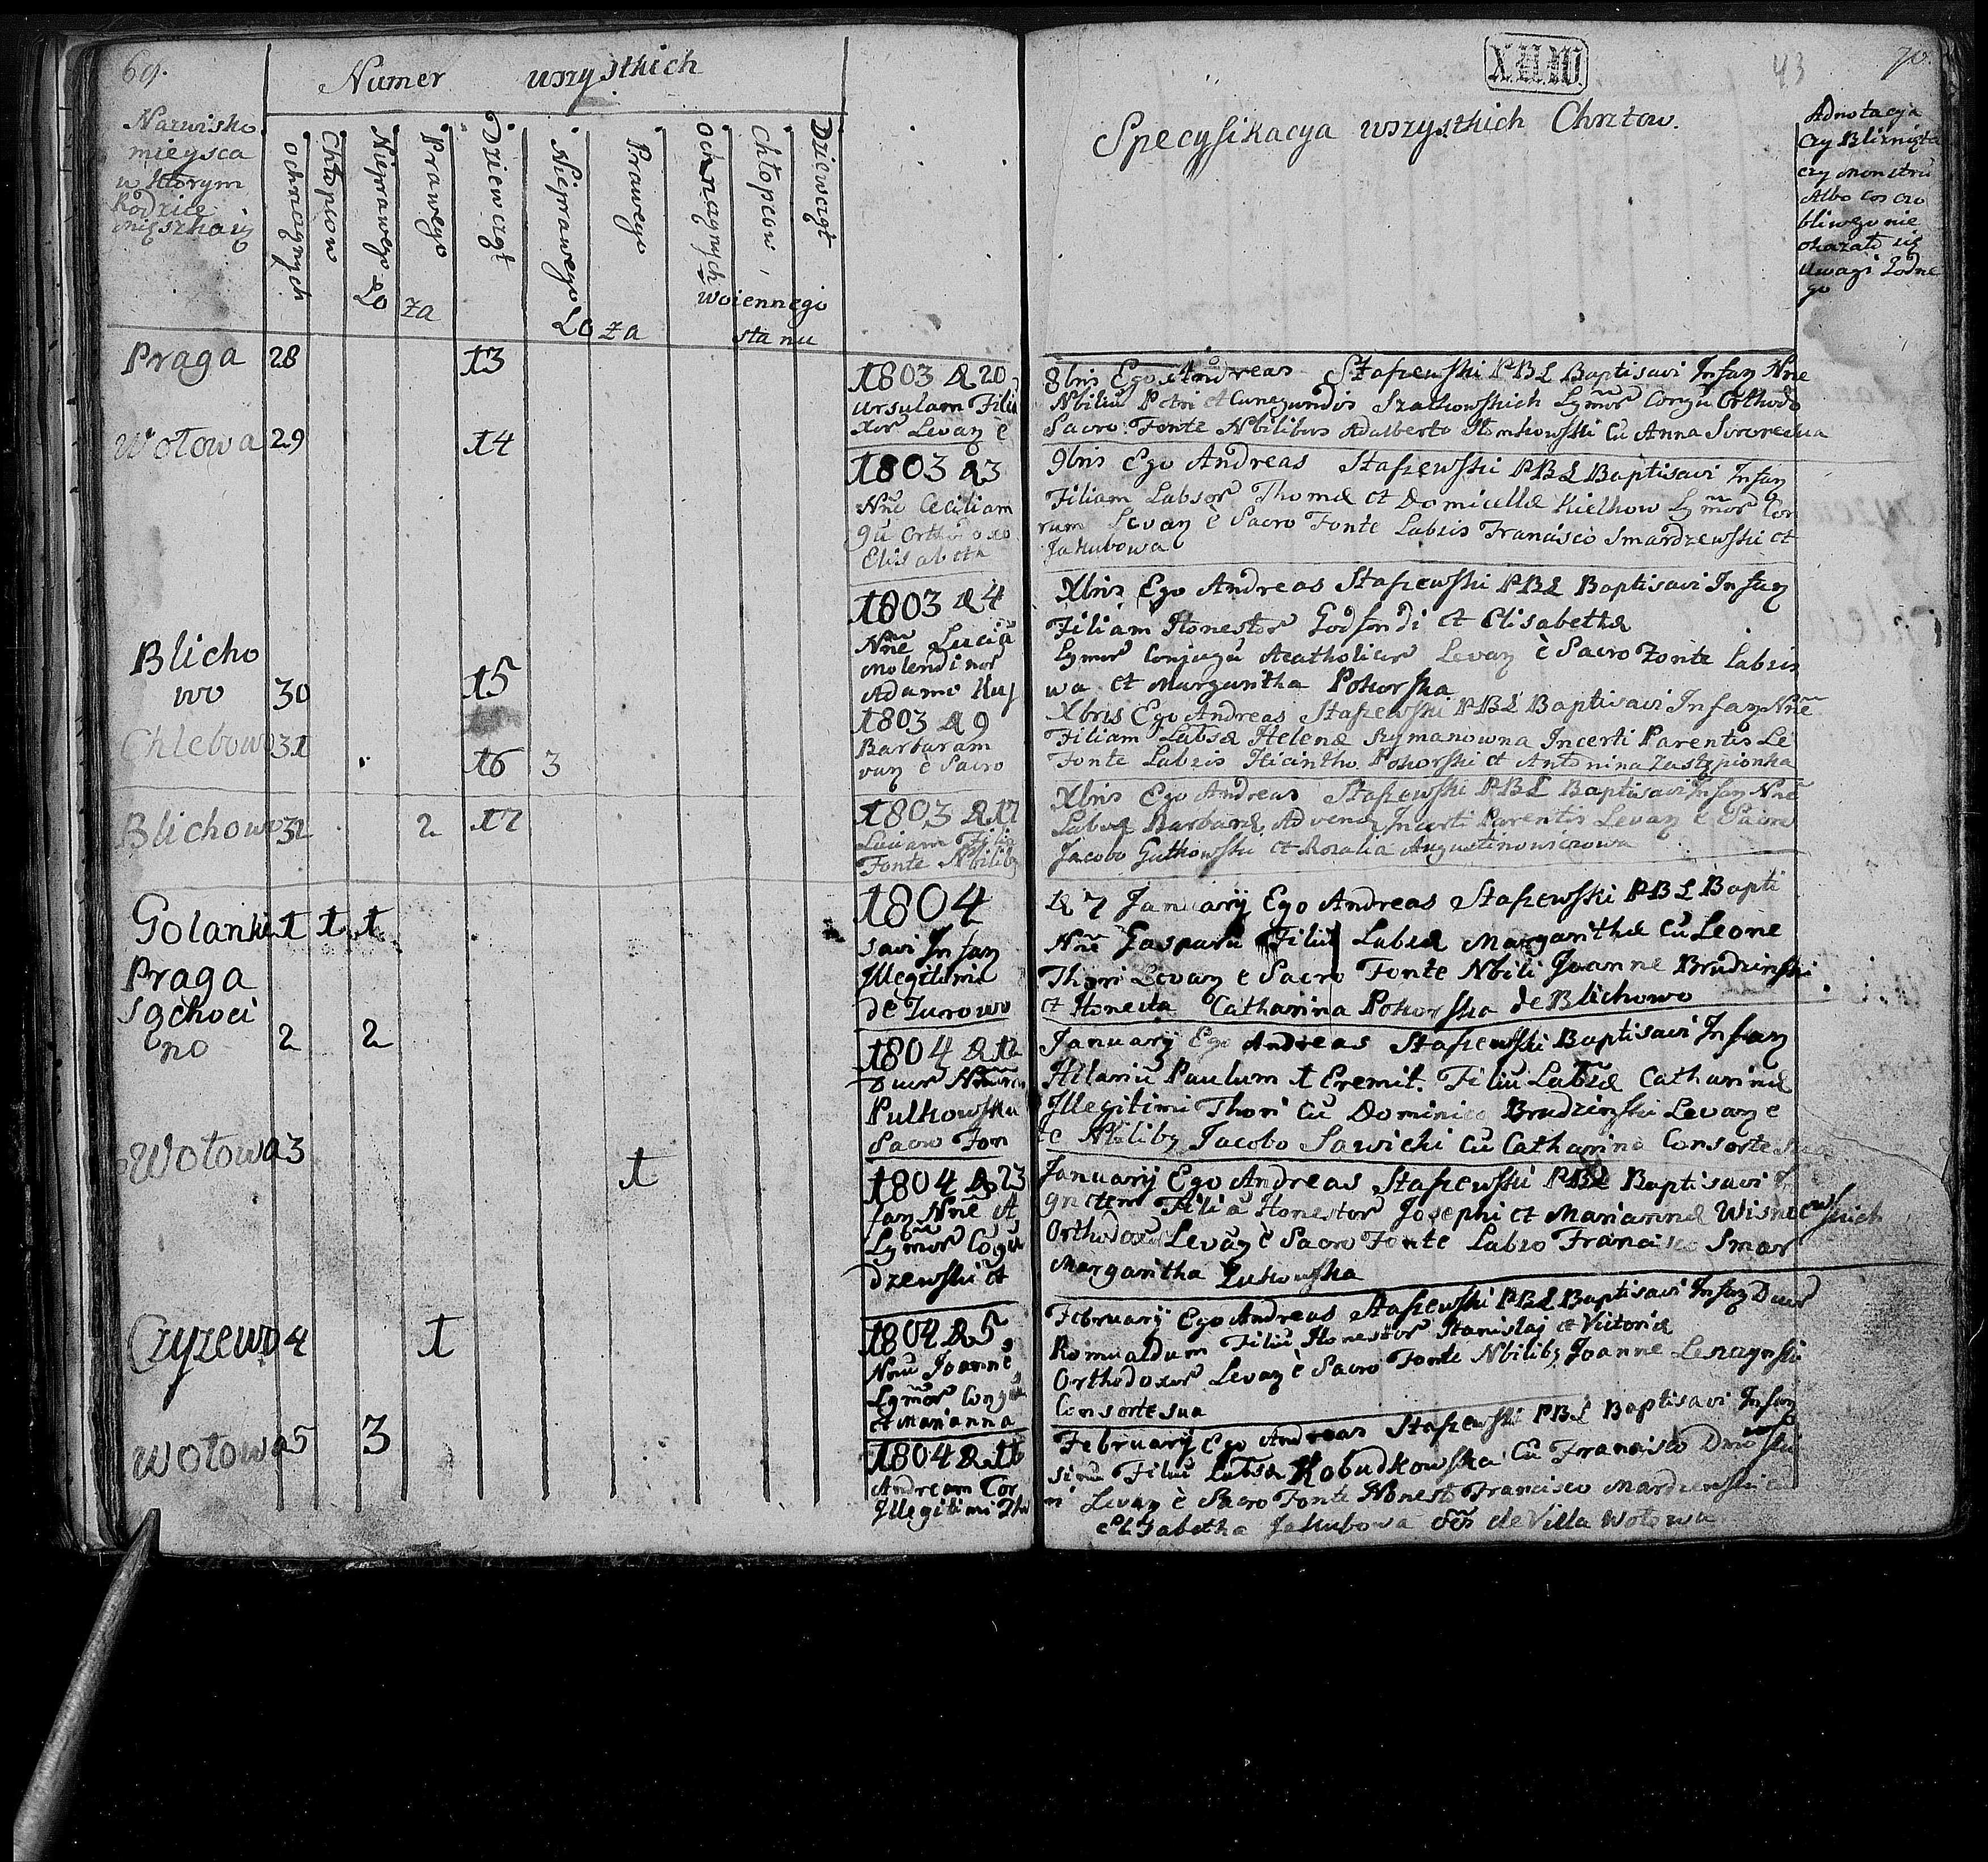 69.
Numer wszystkich
Nazwisko
mieysca
w ktorym
Rodzice
mięszkaią
ochrzczonych
Chłopcow
Nieprawego
Prawego
Łoża
Dziewcząt
Nieprawego
Prawego
Łoża
ochrzczonych
Chłopcow
Dziewcząt
woiennego
stanu
XII.IV.
43
70.
Specyfikacya wszystkich Chrztow.
Adnotacya
czy Bliznięta
czy monstru
Albo cos oso
bliwego nie
okazało się
uwagi godne
go
Praga 28 13
1803 d 20 8bris Ego Andreas Staszewski PBL Baptisavi Infan Nne
Ursulam Filiā Nbiliū Petri et Cunegundis Szatkowskich Lgmor Conju Orthodo
xor Levan è Sacro Fonte Nbilibus Adalberto Slomkowski Cū Anna
Wotowa 29 14
1803 d 3 9bris Ego Andreas Staszewski PBL Baptisavi Infan
Nne Ceciliam Filiam Labsor Thomæ et Domicellæ Kielkow Lgmor Con
gū Orthodoxo rum Levan è Sacro Fonte Labsis Francisco Smardzewski et
Elisabetha Jakubowa
Blicho
wo 30 15
1803 d 4 Xbris Ego Andreas Staszewski PBL Baptisavi Infan
Nne Luciā Filiam Honestor Godfondi et Elisabethæ
molendinor Lgmor Conjugū Acatholicor Levan è Sacro Fonte Labsis
Adamo Kuj wa et Margaritha Pokorska
Chlebowo 31 16 3
1803 d 9 Xbris Ego Andreas Staszewski PBL Baptisavi Infan Nne
Barbaram Filiam Labsæ Helenæ Rymanowna Incerti Parentis Le
van è Sacro Fonte Labsis Hiacintho Pokorski et Antonina Zastępionka
Blichowo 32 2 17
1803 d 17 Xbris Ego Andreas Staszewski PBL Baptisavi Infan Nne
Luciam Filiā Labsæ Barbaræ Advenæ Incerti Parentis Levan è Sacro
Fonte Nbilibq Jacobo Gutkowski et Rozalia Augustinowiczowa
Golanki 1 1 1
1804 d 7 Januarij Ego Andreas Staszewski PBL Bapti
savi Infan Nne Gasparū Filiū Labsæ Margarithæ Cū Leone
Illegitimi Thori Levan e Sacro Fonte Nbili Joanne Brudzinski
de Zurowo et Honesta Catharina Pokorska de Blichowo
Praga
Sąchoci
no 2 2
1804 d 12 Januarij Ego Andreas Staszewski Baptisavi Infan
Duor Nminū Hilariū Paulum 1 Eremit. Filiū Labsæ Catharinæ
Pulkowska Illegitimi Thori Cū Dominico Brudzinski Levan e
Sacro Fon te Nbilibq Jacobo Sawicki Cū Catharina Consorte sua
Wotowa 3 1
1804 d 23 Januarij Ego Andreas Staszewski PBL Baptisavi In
fan Nne A gnetem Filiā Honestor Josephi et Mariannæ Wisniewskich
Lgmor Cōgū Orthodoxor Levan è Sacro Fonte Labso Francisco Smar
dzewski et Margaritha Zukowska
Czyzewo 4 1
1804 d 5 February Ego Andreas Staszewski PBL Baptisavi Infan Duor
Nnū Joanne Romualdum Filiū Honestor Stanislaj et Victoriæ
Lgmor Congū Orthodoxor Levan è Sacro Fonte Nbilibq Joanne Leszczynski
et Marianna Consorte sua
Wotowa 5 3
1804 d 16 February Ego Andreas Staszewski PBL Baptisavi Infan
Andream Cor sinū Filiū Labsæ Kobudkowska Cū Francisco
Illegitimi Tho ri Levan è Sacro Fonte Honesto Francisco Mardzewski cū
Elisabetha Jakubowa de Villa Wotowa